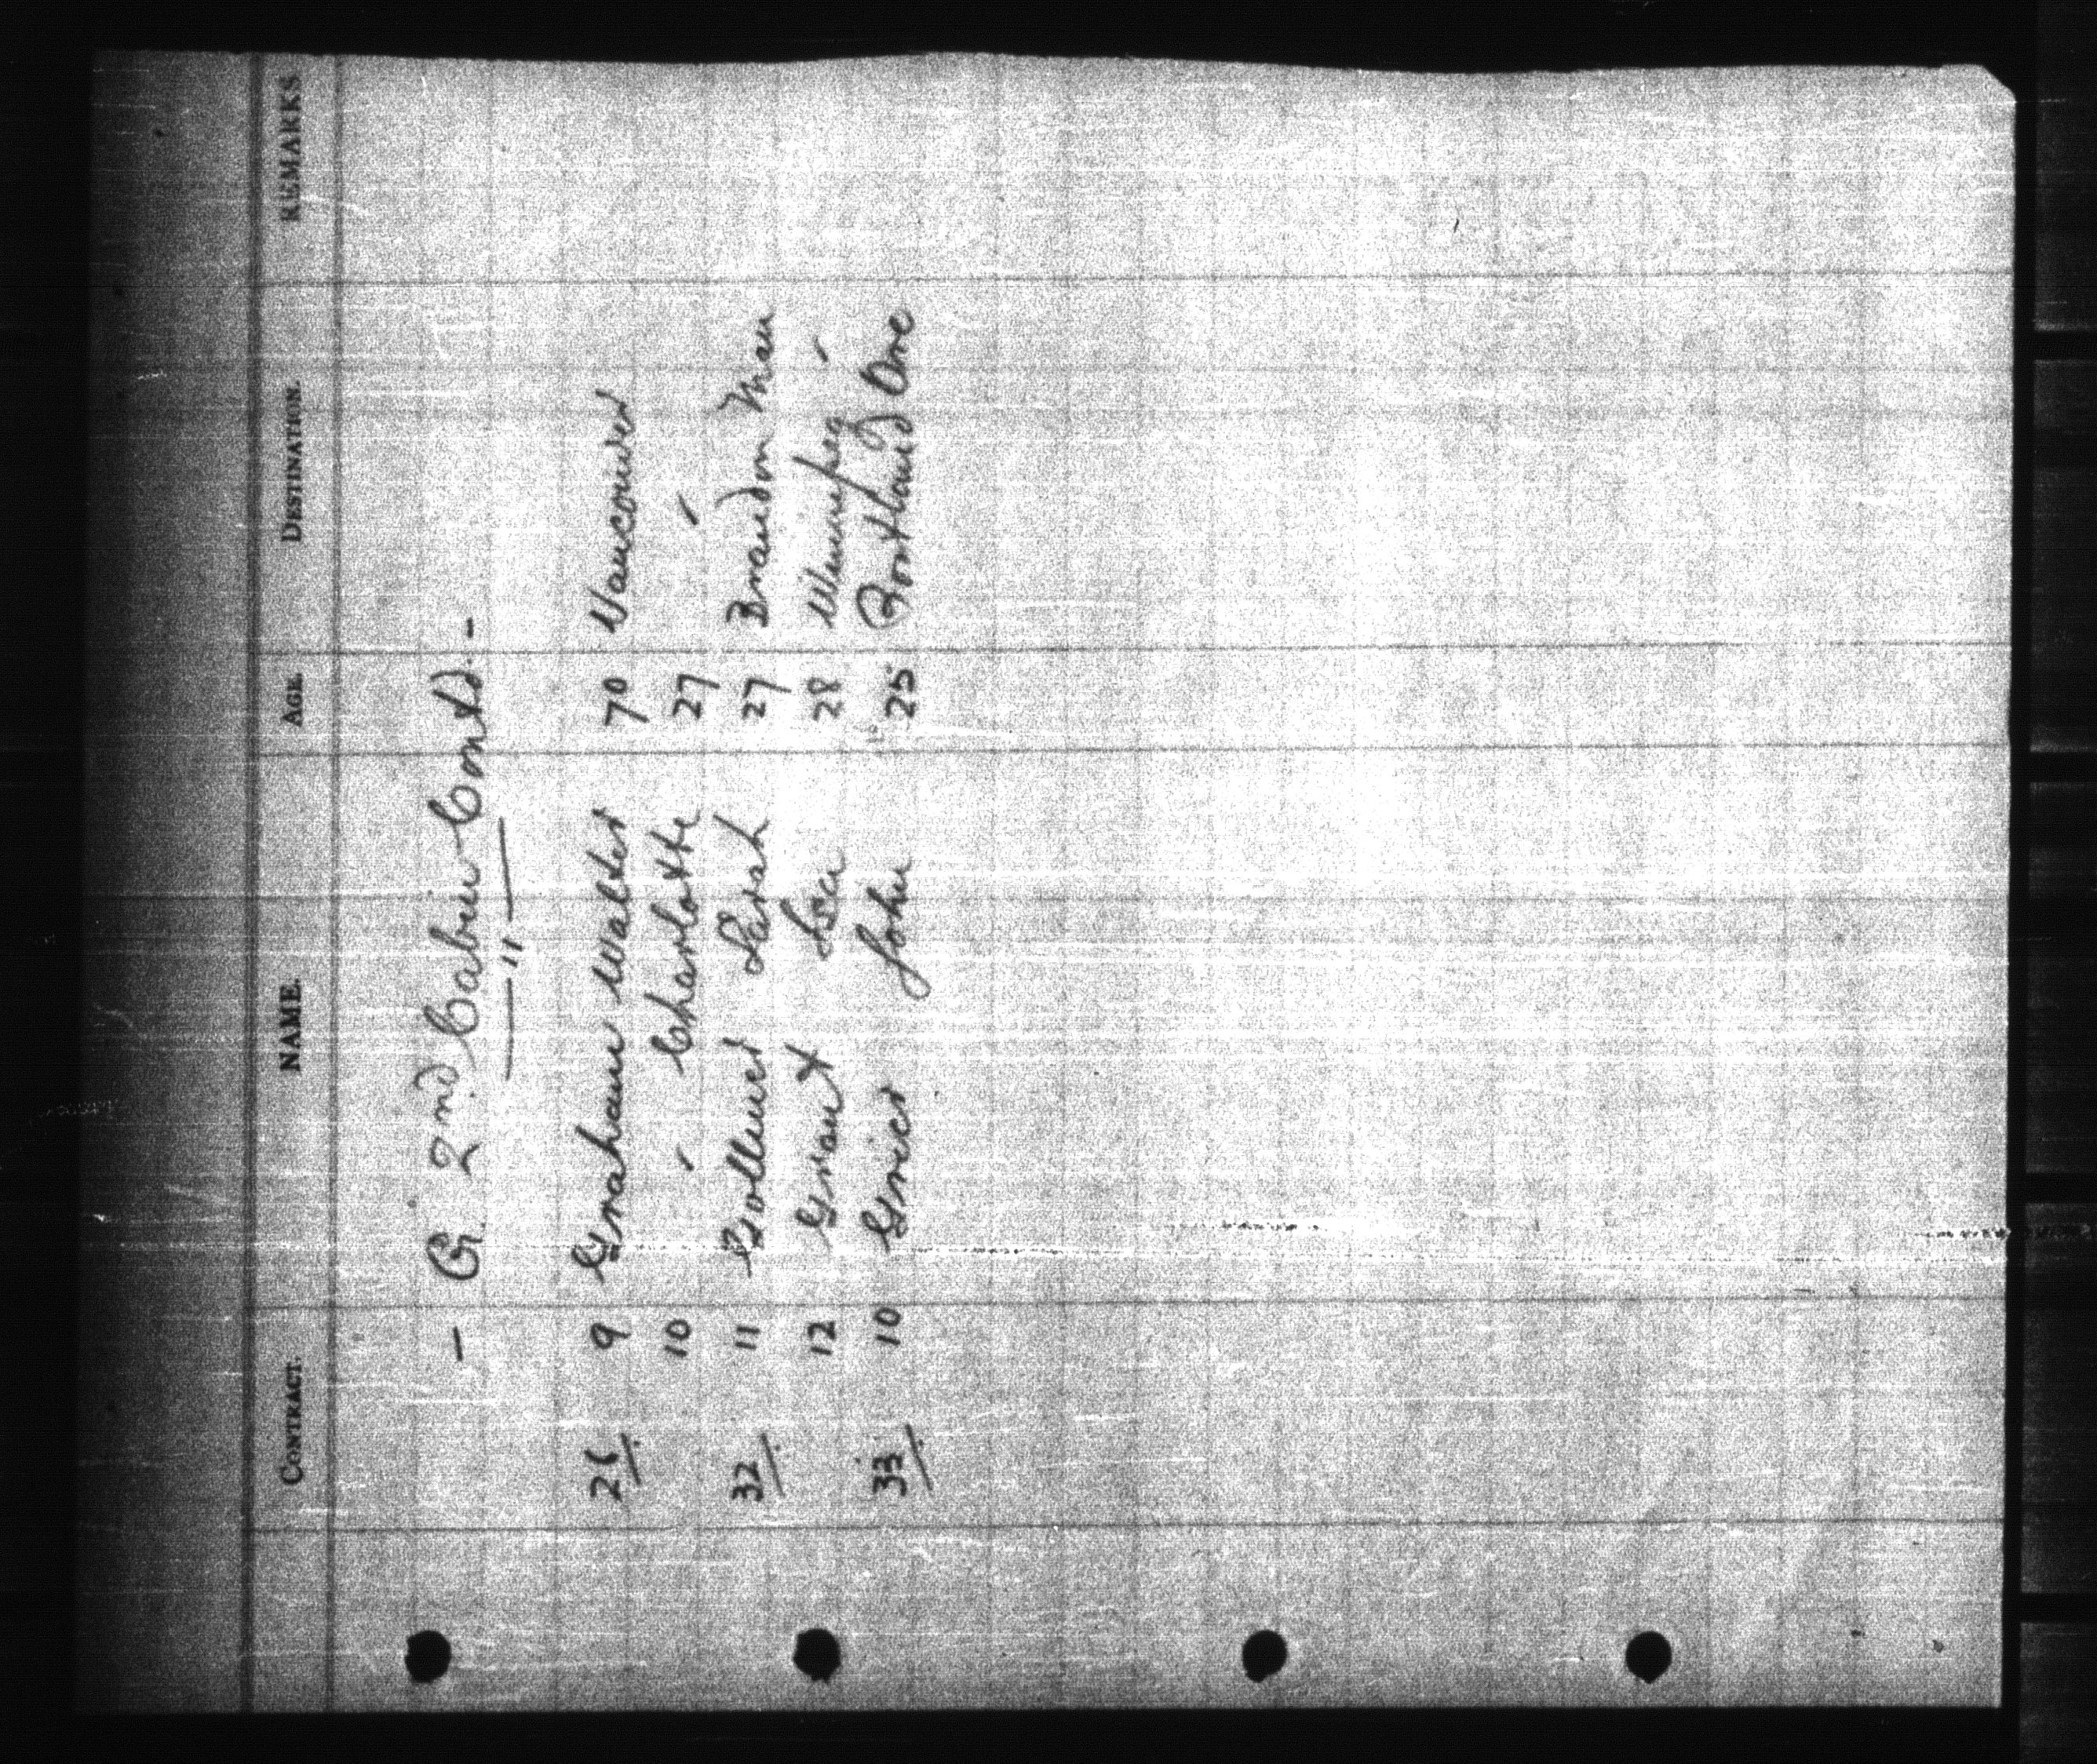 CONTRACT. NAME. AGE. DESTINATION. REMARKS
- G. 2nd Cabin Contd. -
— " —
26/. 9 Graham Walter 70 Vancouver
10 " Charlotte 27 "
32/. 11 Gollner Sarah 27 Brandon Man
12 Grant Isa 28 Winnipeg "
33/. 10 Grier John 25 Portland Ore